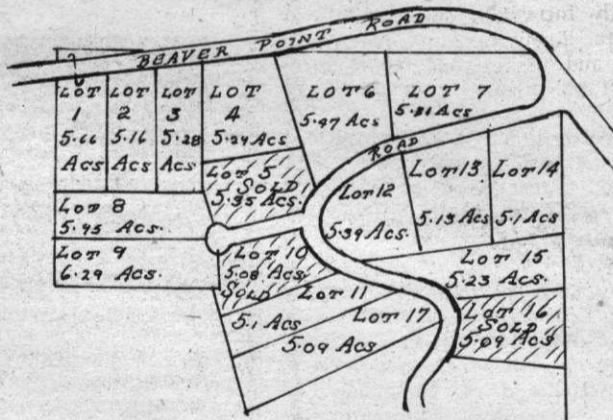 BEAVER POINT ROAD
LOT
1
5.66
Acs
LOT
2
5.16
Acs
LOT
3
5.28
Acs
LOT
4
5.24 Acs
LOT 6
5.47 Acs
LOT 7
5.21 Acs
ROAD
LOT 5
SOLD
5.35 Acs.
LOT 12
5.39 Acs.
LOT 13
5.13 Acs
LOT 14
5.1 Acs
LOT 8
5.95 Acs.
LOT 9
6.29 Acs.
LOT 10
5.08 Acs
SOLD
LOT 11
5.1 Acs
LOT 15
5.23 Acs.
LOT 16
SOLD
5.09 Acs
LOT 17
5.09 Acs